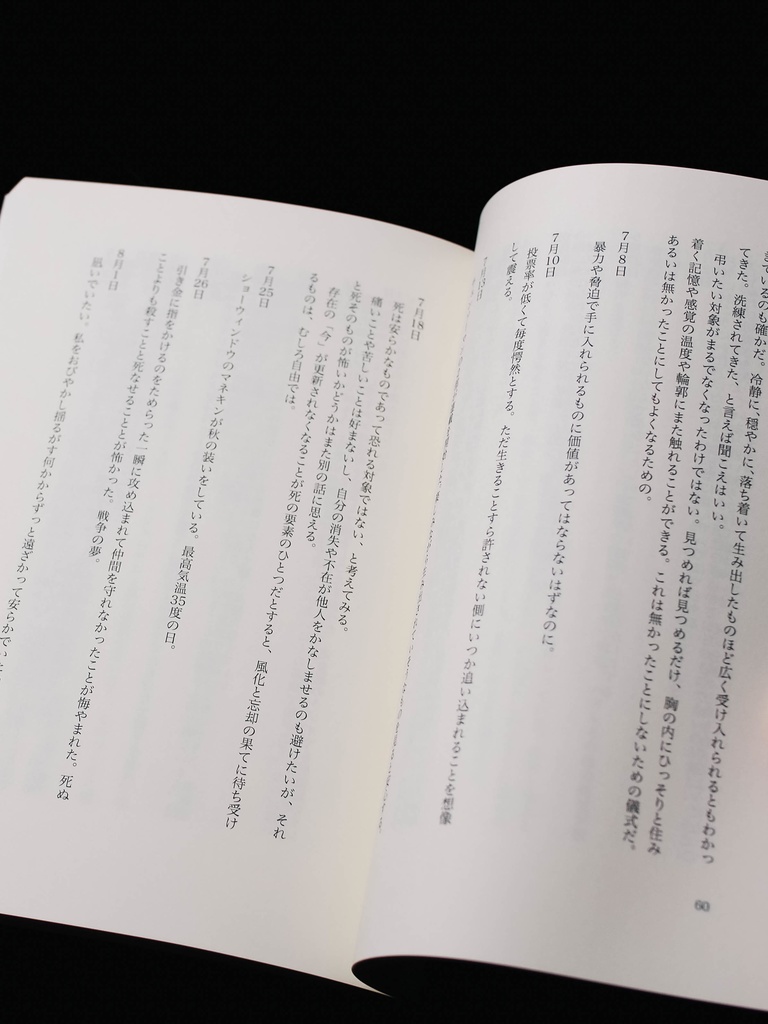 きているのも確かだ。冷静に、穏やかに、落ち着いて生み出したものほど広く受け入れられるともわかっ
てきた。洗練されてきた、と言えば聞こえはいい。
弔いたい対象がまるでなくなったわけではない。見つめれば見つめるだけ、胸の内にひっそりと住み
着く記憶や感覚の温度や輪郭にまた触れることができる。これは無かったことにしないための儀式だ。
あるいは無かったことにしてもよくなるための。
7月8日
暴力や脅迫で手に入れられるものに価値があってはならないはずなのに。
7月10日
投票率が低くて毎度愕然とする。ただ生きることすら許されない側にいつか追い込まれることを想像
して震える。
60
7月18日
死は安らかなものであって恐れる対象ではない、と考えてみる。
痛いことや苦しいことは好まないし、自分の消失や不在が他人をかなしませるのも避けたいが、それ
と死そのものが怖いかどうかはまた別の話に思える。
存在の「今」が更新されなくなることが死の要素のひとつだとすると、風化と忘却の果てに待ち受け
るものは、むしろ自由では。
7月25日
ショーウィンドウのマネキンが秋の装いをしている。最高気温35度の日。
7月26日
引き金に指をかけるのをためらった一瞬に攻め込まれて仲間を守れなかったことが悔やまれた。死ぬ
ことよりも殺すことと死なせることとが怖かった。戦争の夢。
8月1日
凪いでいたい。私をおびやかし揺るがす何かからずっと遠ざかって安らかでい